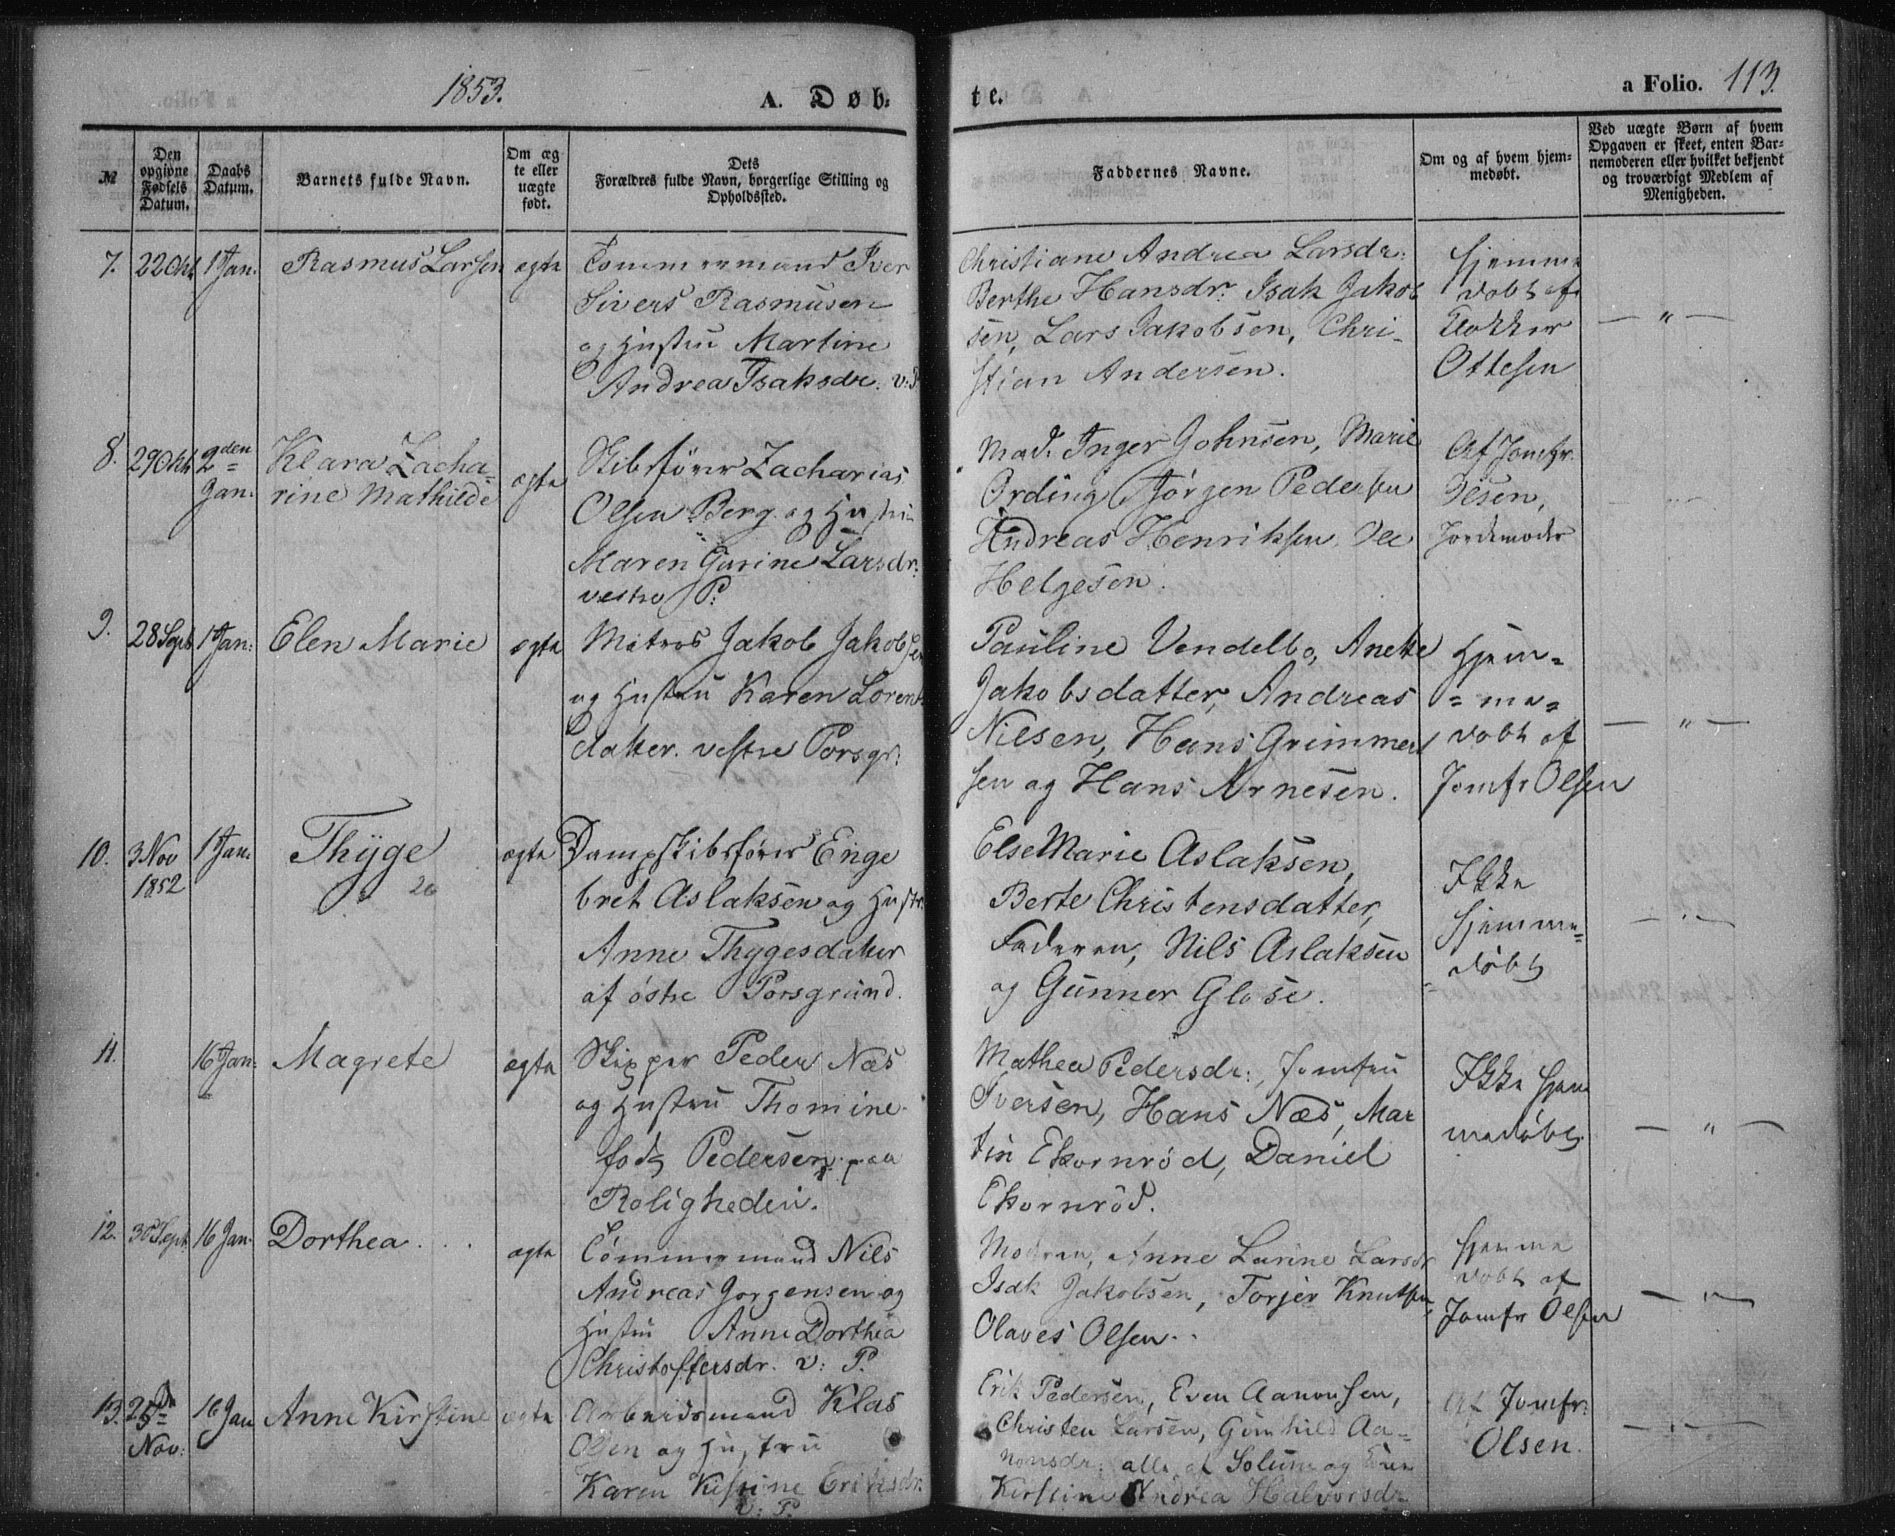 1853.
A. Døb-
te.
a Folio. 113.
№
Den opgivne Fødsels Datum.
Daabs Datum.
Barnets fulde Navn.
Om ægte eller uægte født.
Dets Forældres fulde Navn, borgerlige Stilling og Opholdssted.
Faddernes Navne.
Om og af hvem hjemmedøbt.
Ved uægte Børn af hvem Opgaven er skeet, enten Barnemoderen eller hvilket bekjendt og troværdigt Medlem af Menigheden.
7. 22 Okt 1 Jan. Rasmus Larsen ægte
Tømmermand Iver
Sivers Rasmusen
og Hustru Martine
Andrea Isaksdr. v: P
Christiane Andrea Larsdr:
Berthe Hansdr: Isak Jakob
sen, Lars Jakobsen, Chri-
stian Andersen.
Hjemme
døbt af
Klokker
Ottesen
— " —
8. 29 Okt 2den Jan: Klara Zacha-
rine Mathilde ægte
Skibsfører Zacharias
Olsen Berg og Hustru
Maren Gurine Larsdr:
vestre P:
Mad. Inger Johnsen, Marie
Ording Jørgen Pedersen
Andreas Henriksen, Ole
Helgesen.
Af Jomfr.
Olsen,
Jordemoder
9. 28 Sept 1 Jan: Elen Marie ægte
Matros Jakob Jakobsen
og Hustru Karen Lorents
datter. vestre Porsgr:
Pauline Vendelbo, Anette
Jakobsdatter, Andreas
Nilsen, Hans Grimmert
sen og Hans Arnesen.
Hjem=
=me=
døbt af
Jomfr Olsen
— " —
10. 3 Nov 1852 1 Jan. Thyge ægte
20
Dampskibsfører Enge
bret Aslaksen og Hustr.
Anne Thygesdatter
af østre Porsgrund.
Else Marie Aslaksen,
Berte Christensdatter,
Faderen, Nils Aslaksen
og Gunner Glose.
Ikke
hjemme=
døbt
— " —
11. 16 Jan: Magrete ægte
Skipper Peder Næs
og Hustru Thomine
født Pedersen paa
Roligheden.
Mathea Pedersdr:, Jomfru
Iversen, Hans Næs, Mar
tin Ekornrød, Daniel
Ekornrød.
Ikke hjem
medøbt
— " —
12. 30 Sept 16 Jan. Dorthea. ægte
Tømmermand Nils
Andreas Jorgensen og
Hustru Anne Dorthea
Christoffersdr. v: P.
Modren, Anne Larine Larsdr
Isak Jakobsen, Torjer Knutsen,
Olaves Olsen.
Hjemme
døbt af
Jomfr Olsen
— " —
13. 25de Nov: 16 Jan Anne Kirstine ægte
Arbeidsmand Klas
Olsen og Hustru
Karen Kistine Eriksdr.
v: P.
Erik Pedersen, Even Aanonsen,
Christen Larsen, Gunhild Aa=
nonsdr: alle af Solum og
Kirstine Andrea Halvorsdr
Af Jomfr:
Olsen.
— " —